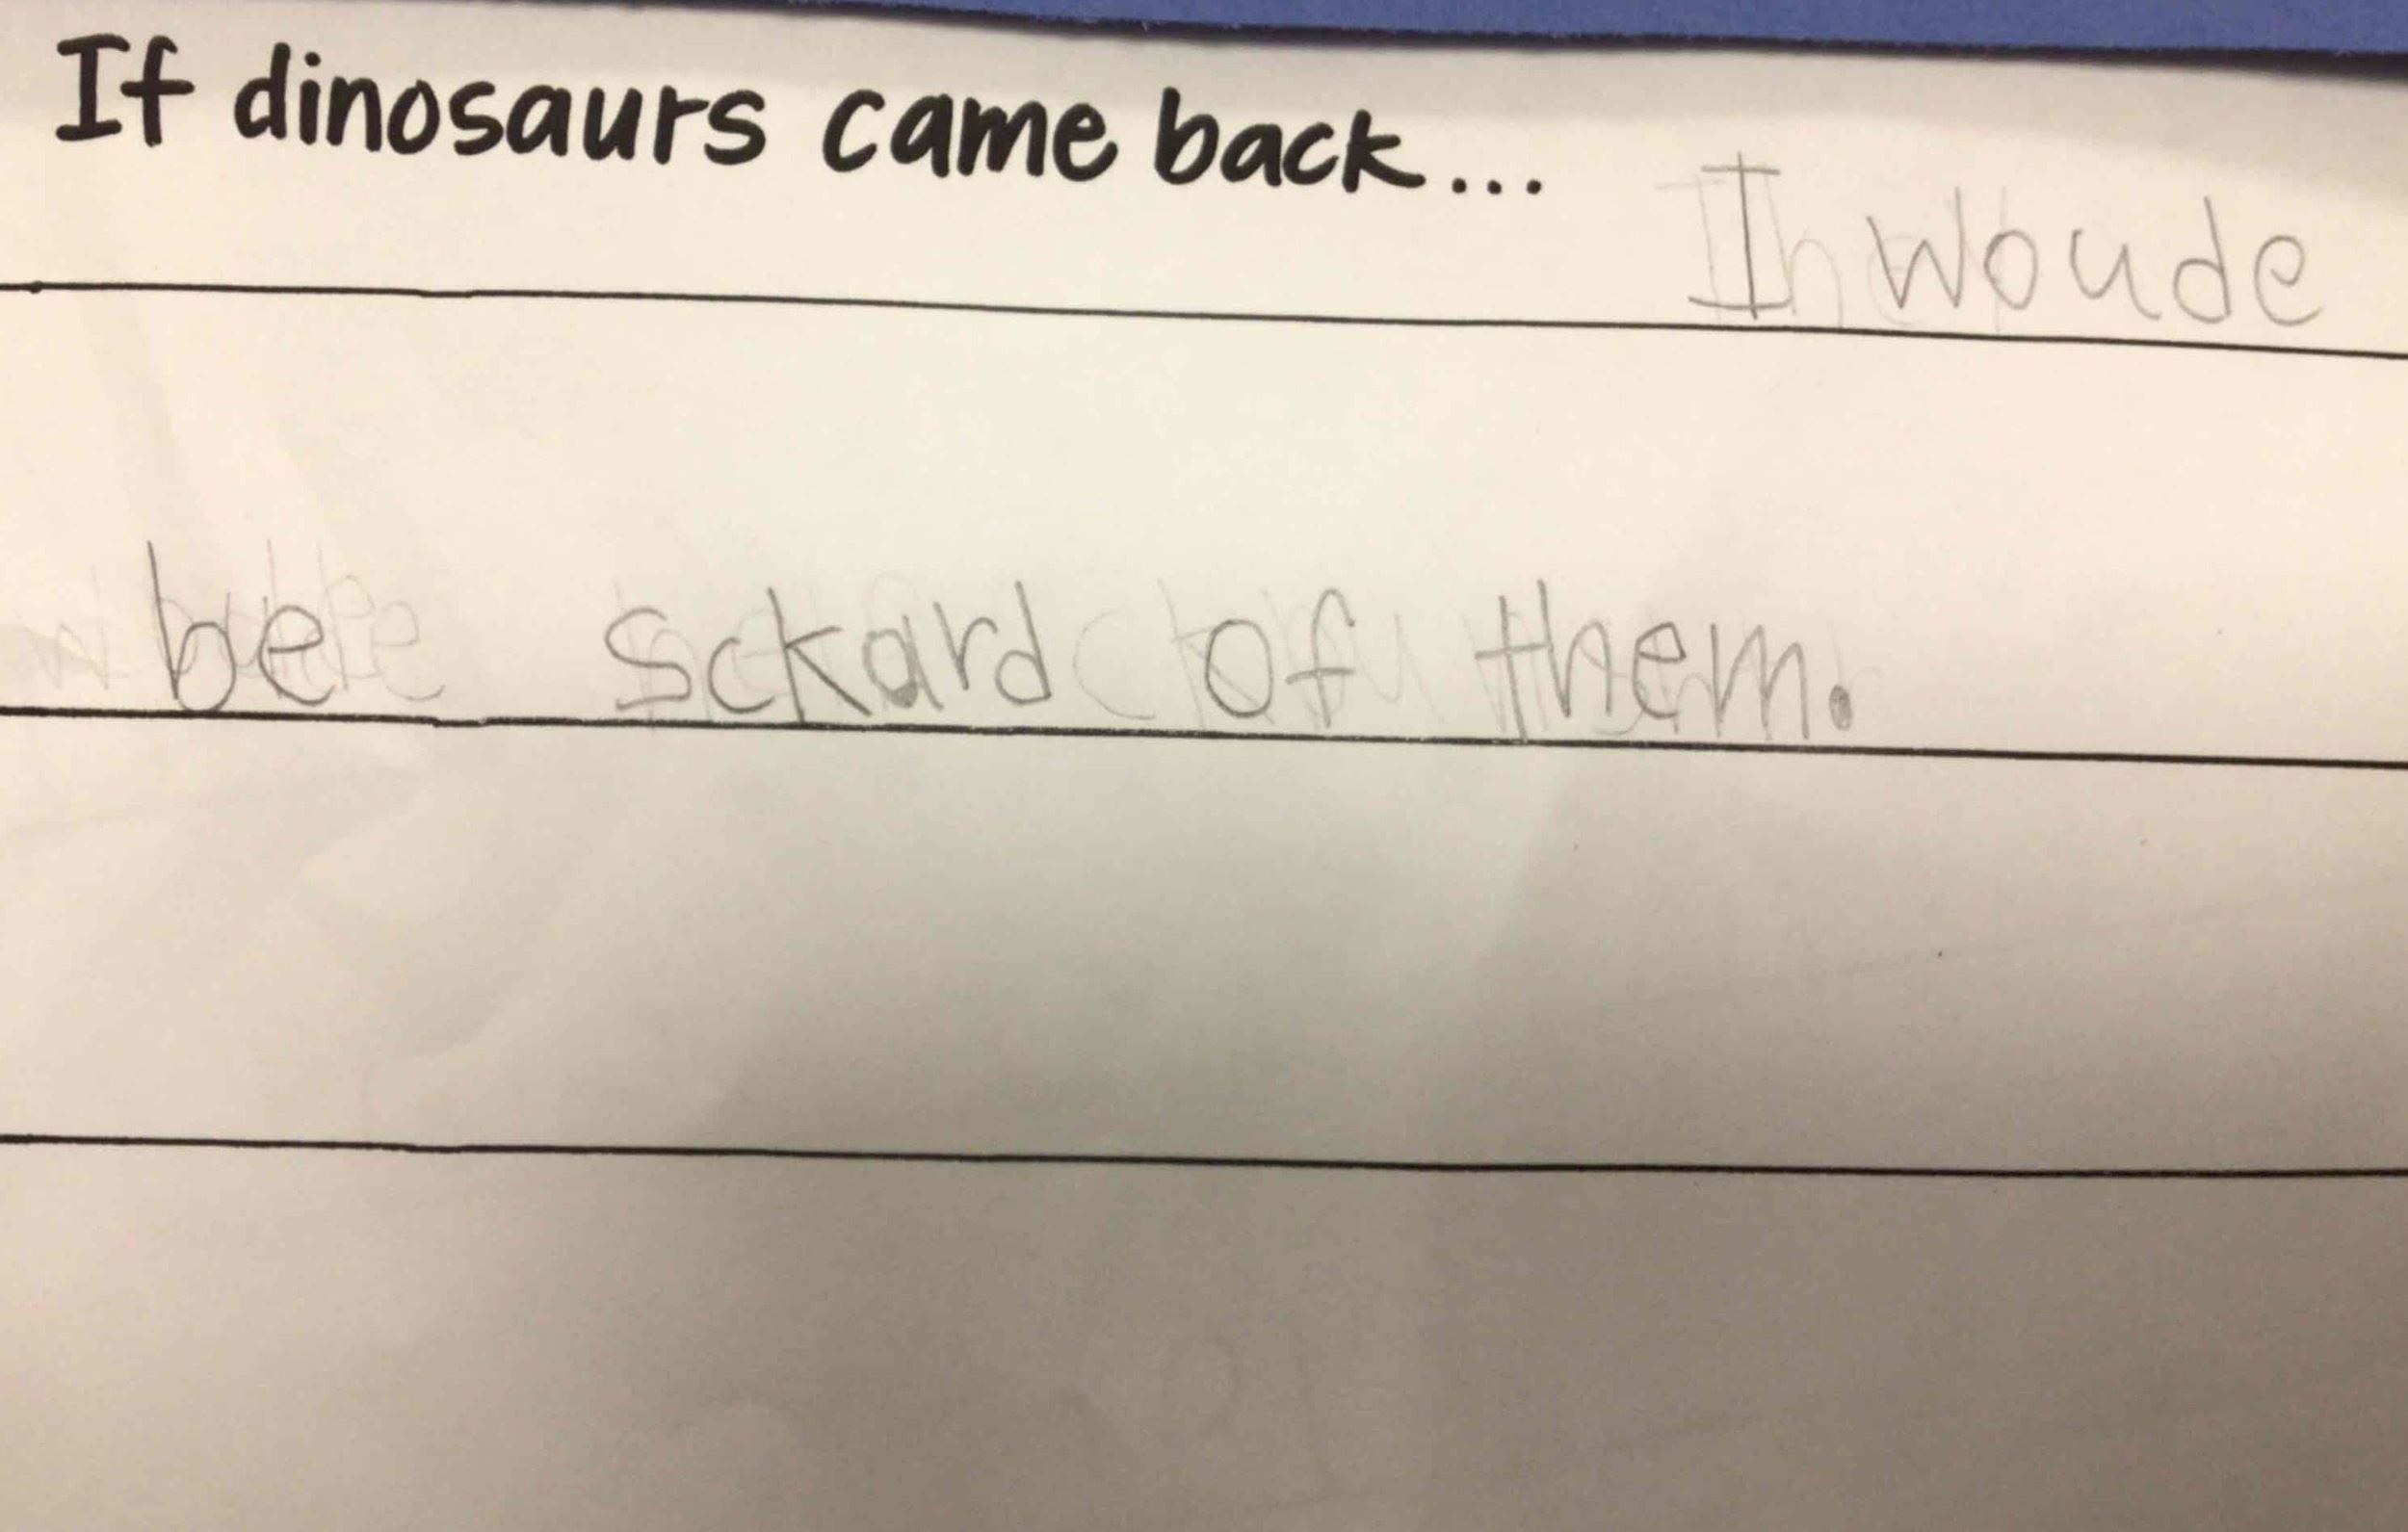 If dinosaurs came back... I woude
be sckard of them.